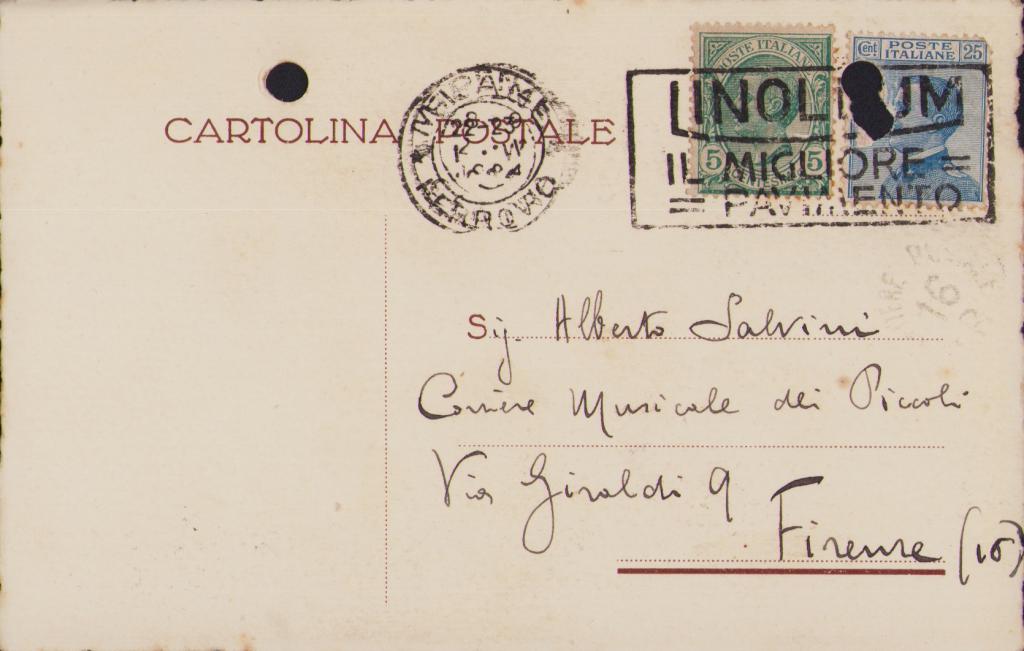 CARTOLINA POSTALE
FERROVIA
POSTE ITALIANE
5 5
Cent POSTE ITALIANE 25
LINOLEUM
IL MIGLIORE =
= PAVIMENTO
Sig. Alberto Salvini
Corriere Musicale dei Piccoli
Via Giraldi 9
Firenze (10)